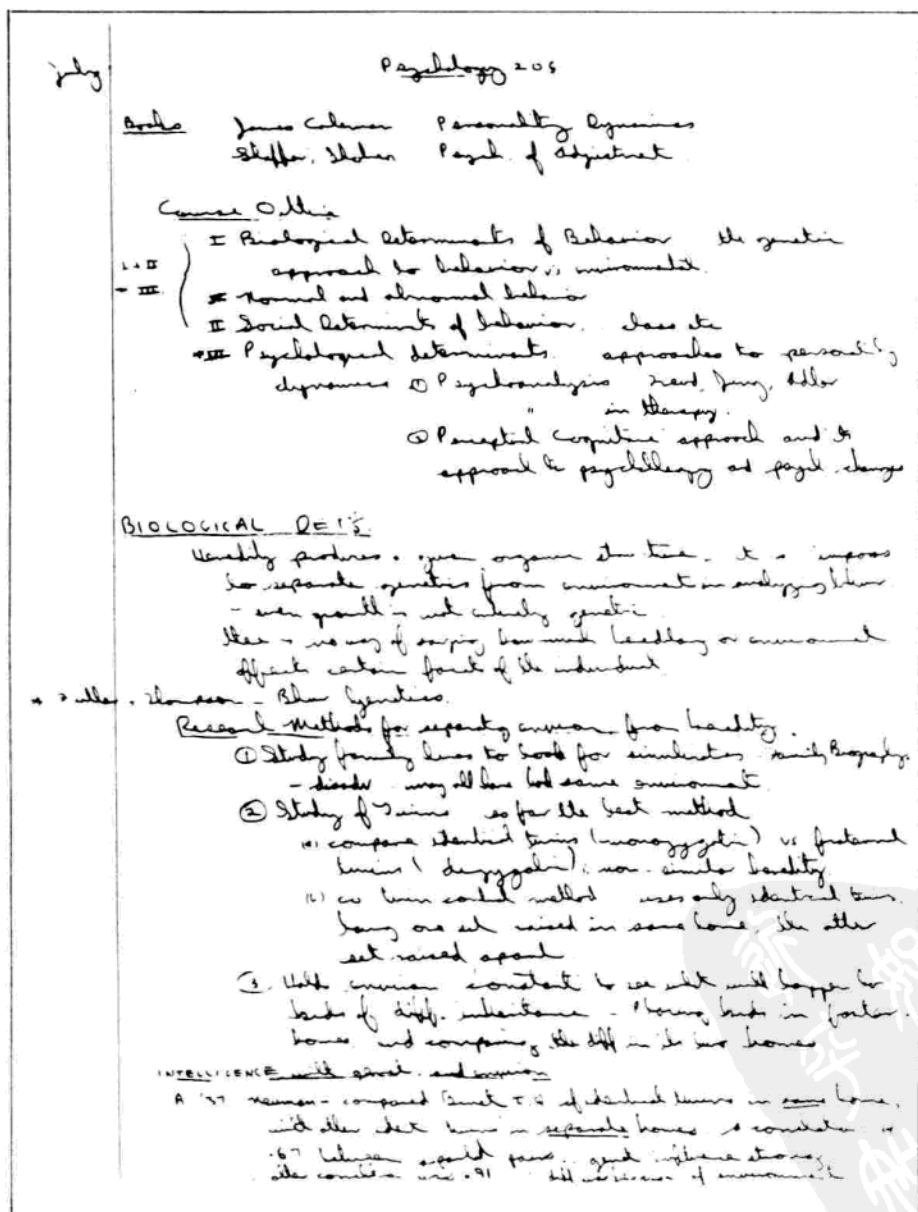 july Psychology 205
Books James Coleman Personality Dynamics
Shaffer, Shoben Psych. of Adjustment
Course Outline
I Biological Determinants of Behavior the genetic
approach to behavior vs environmental.
Normal and abnormal behavior
II Social Determinants of behavior, class etc
III Psychological determinants approaches to personality
dynamics ① Psychoanalysis Freud, Jung, Adler
" in therapy.
② Perceptual Cognitive approach and its
approach to psychotherapy and psych. changes
BIOLOGICAL DET'S
Heredity produces a given organism structure. It is imposs
to separate genetics from environment in analyzing
- even growth is not entirely genetic
there is no way of saying how much heredity or environment
affects certain facet of the individual
Fuller, Thompson - Genetics
Research Methods for separating environ. from heredity.
① Study family lines to look for similarities Family Biography.
- may all have had same environment
② Study of Twins so far the best method
(a) compare identical twins (monozygotic) vs fraternal
twins (dizygotic), non-similar heredity
(b) co twin control method uses only identical twins.
having one set raised in same home, the other
set raised apart
③ Hold environ constant to see what will happen to
kids of diff. inheritance - Placing kids in foster
homes and comparing the diff in the two homes
INTELLIGENCE with and environ
A '37 Newman - compared Binet I.Q of identical twins in same home,
with other ident twins in separate homes
.67 between pairs. strong
other .91 of environment